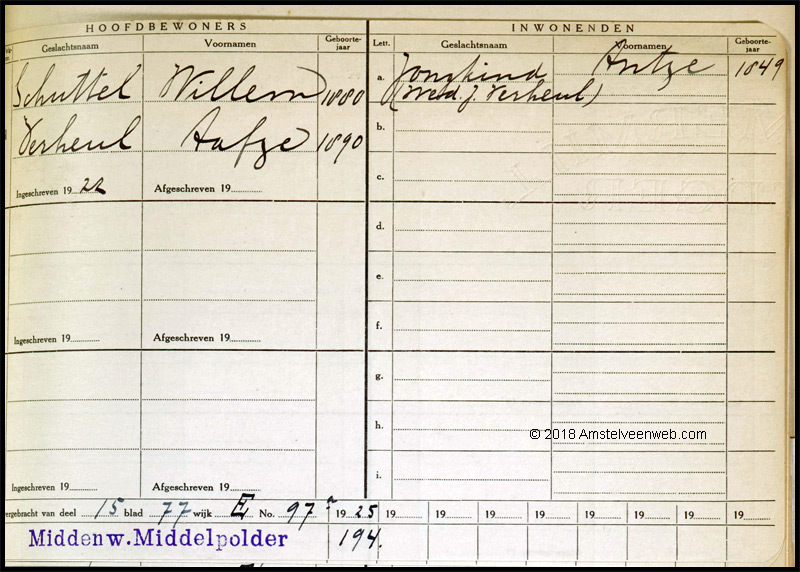 HOOFDBEWONERS INWONENDEN
Geslachtsnaam Voornamen Geboorte-jaar Lett. Geslachtsnaam Voornamen Geboorte-jaar
Schuttel Willem 1880 a. Jongkind Antze 1849
(Wed. J. Verheul)
Verheul Aafze 1890 b.
Ingeschreven 19 22 Afgeschreven 19 c.
d.
e.
Ingeschreven 19 Afgeschreven 19 f.
g.
h.
© 2018 Amstelveenweb.com
Ingeschreven 19 Afgeschreven 19 i.
vergebracht van deel 15 blad 77 wijk E No. 97 19 25 19 19 19 19 19 19 19 19
Middenw. Middelpolder 194.